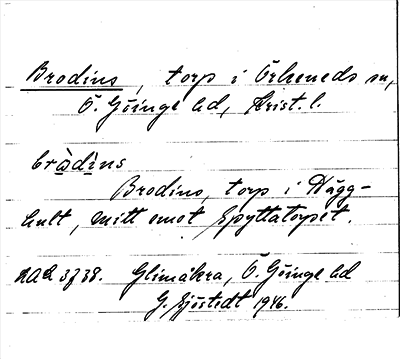 Brodins, torp i Örkeneds sn,
Ö. Göinge hd, Krist. l.
bràdìns
Brodins, torp i Hägg-
hult, mitt emot Spyttatorpet.
3738. Glimåkra, Ö. Göinge hd
G. Sjöstedt 1946.